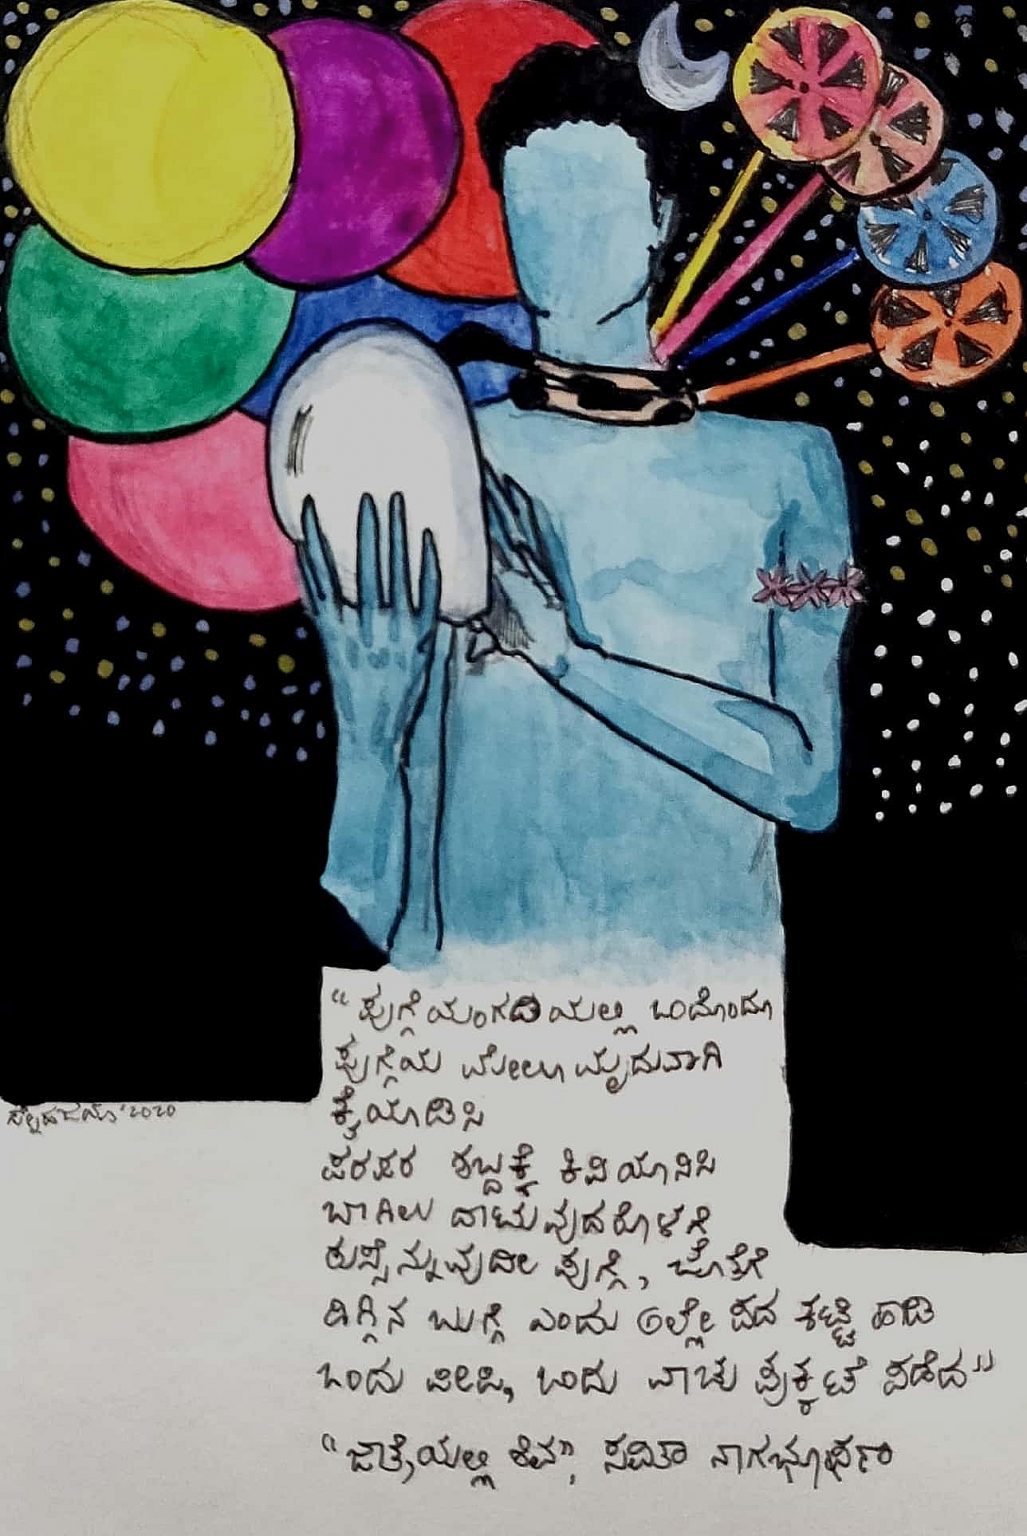 "ಪುಗ್ಗೆಯಂಗಡಿಯಲ್ಲಿ ಒಂದೊಂದೂ
ಪುಗ್ಗೆಯ ಮೇಲೂ ಮೃದುವಾಗಿ
ಕೈಯಾಡಿಸಿ
ಪರಪರ ಶಬ್ದಕ್ಕೆ ಕಿವಿಯಾನಿಸಿ
ಬಾಗಿಲು ದಾಟುವುದರೊಳಗೆ
ಠುಸ್ಸೆನ್ನುವುದೀ ಪುಗ್ಗೆ, ಜೊತೆಗೆ
ಹಿಗ್ಗಿನ ಬುಗ್ಗೆ ಎಂದು ಅಲ್ಲೇ ಪದ ಕಟ್ಟಿ ಹಾಡಿ
ಒಂದು ಪೀಪಿ, ಒಂದು ವಾಚು ಪುಕ್ಕಟೆ ಪಡೆದ"
"ಜಾತ್ರೆಯಲ್ಲಿ ಶಿವ", ಸವಿತಾ ನಾಗಭೂಷಣ
'2020